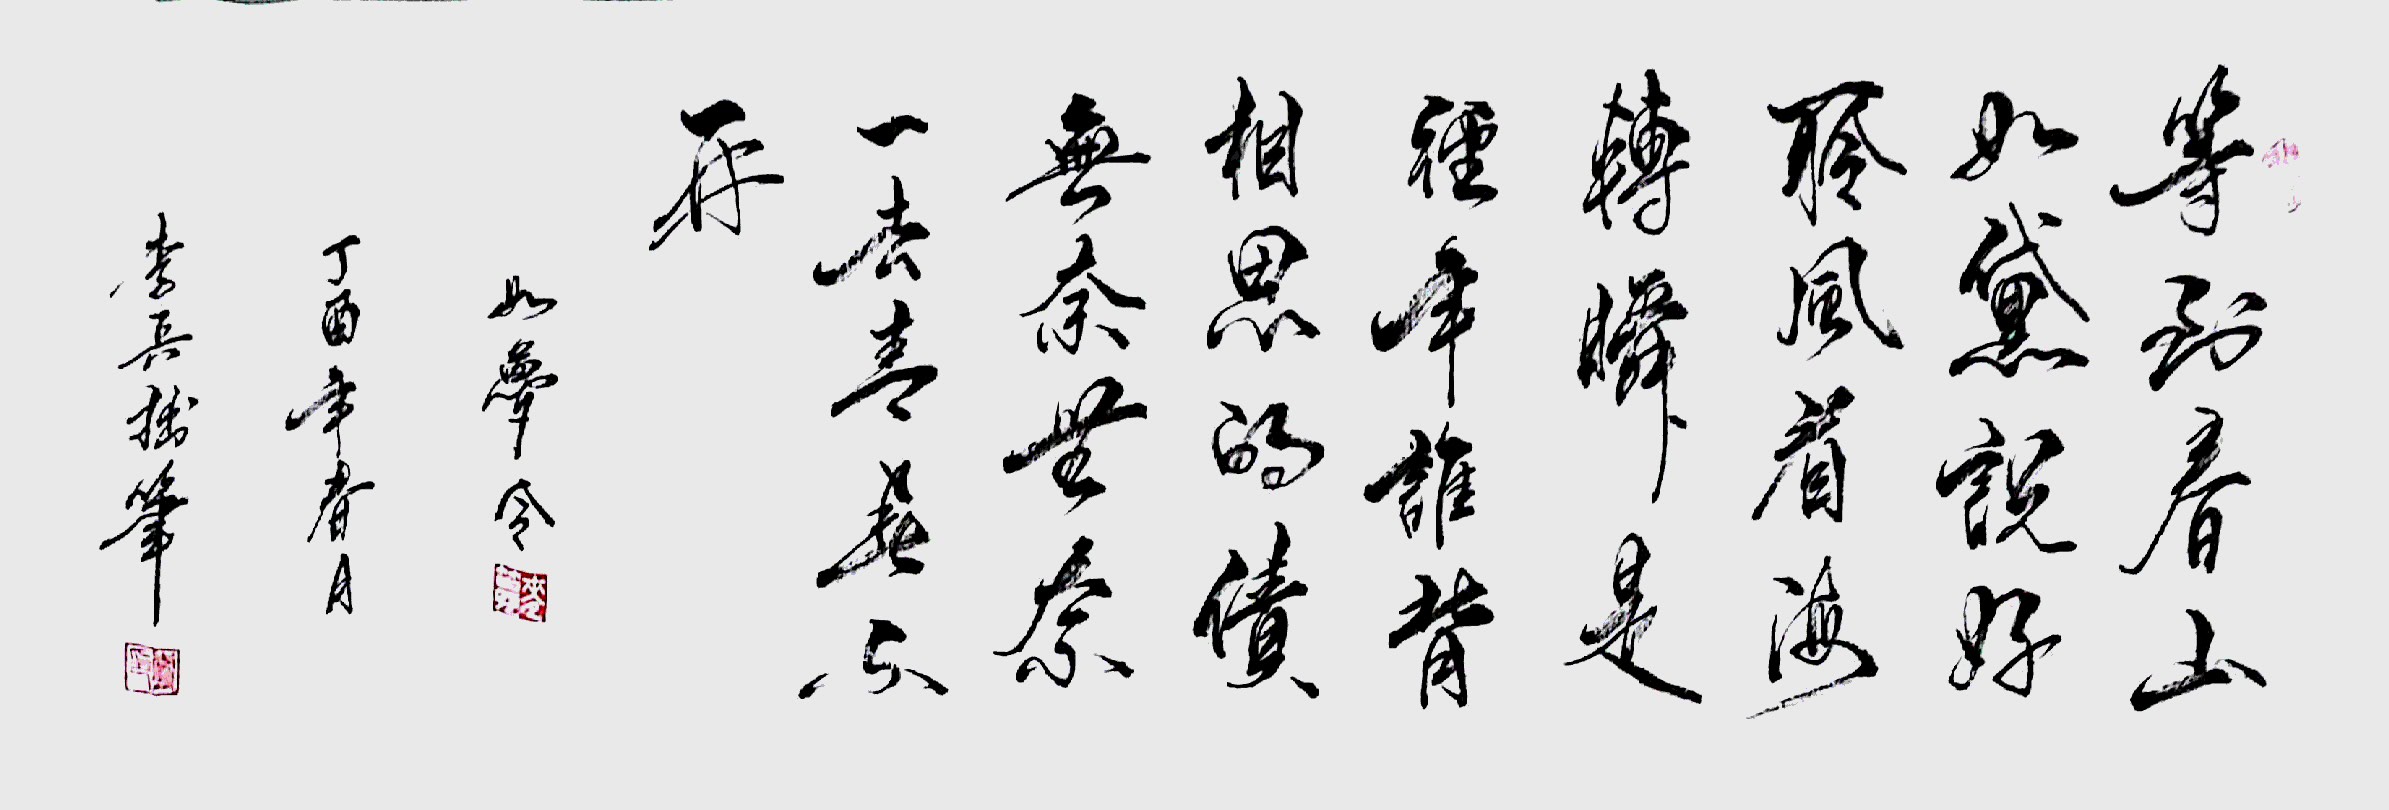 等到春山
如黛說好
聆風看海
轉瞬是
經年誰背
相思的債
無奈無奈
一去青春不
再
如夢令
丁酉年春月
李長樹筆